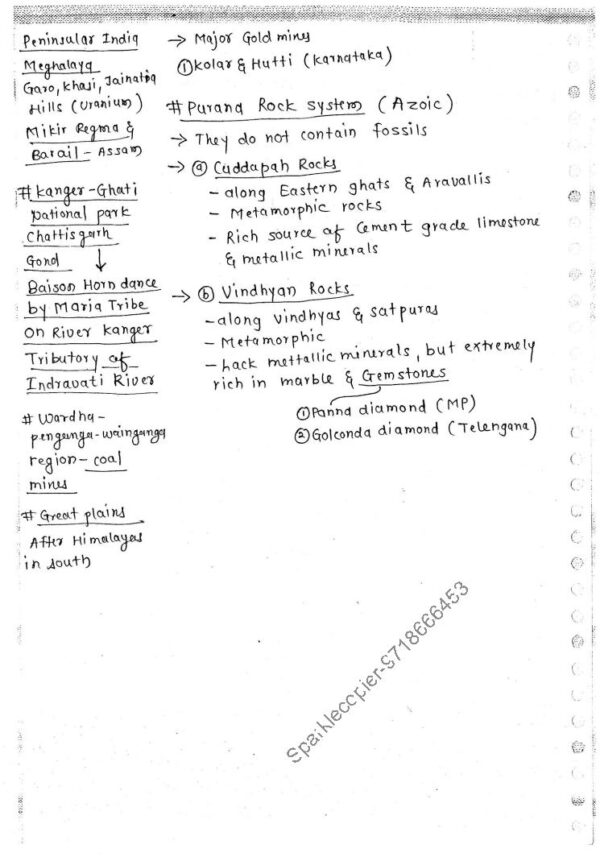 Peninsular India
Meghalaya
Garo, Khasi, Jainatia
Hills (Uranium)
Mikir Regma &
Barail - Assam
# Kanger-Ghati
National park
Chattisgarh
Gond ↓
Baison Horn dance
by Maria Tribe
on River Kanger
Tributory of
Indravati River
# Wardha-
penganga-wainganga
region - coal
mines
# Great plains
After Himalayas
in south
→ Major Gold mines
① Kolar & Hutti (Karnataka)
# Purana Rock System (Azoic)
→ They do not contain fossils
→ ⓐ Cuddapah Rocks
- along Eastern ghats & Aravallis
- Metamorphic rocks
- Rich source of Cement grade limestone
& metallic minerals
→ ⓑ Vindhyan Rocks
- along vindhyas & satpuras
- Metamorphic
- Lack mettallic minerals, but extremely
rich in marble & Gemstones
① Panna diamond (MP)
② Golconda diamond (Telengana)